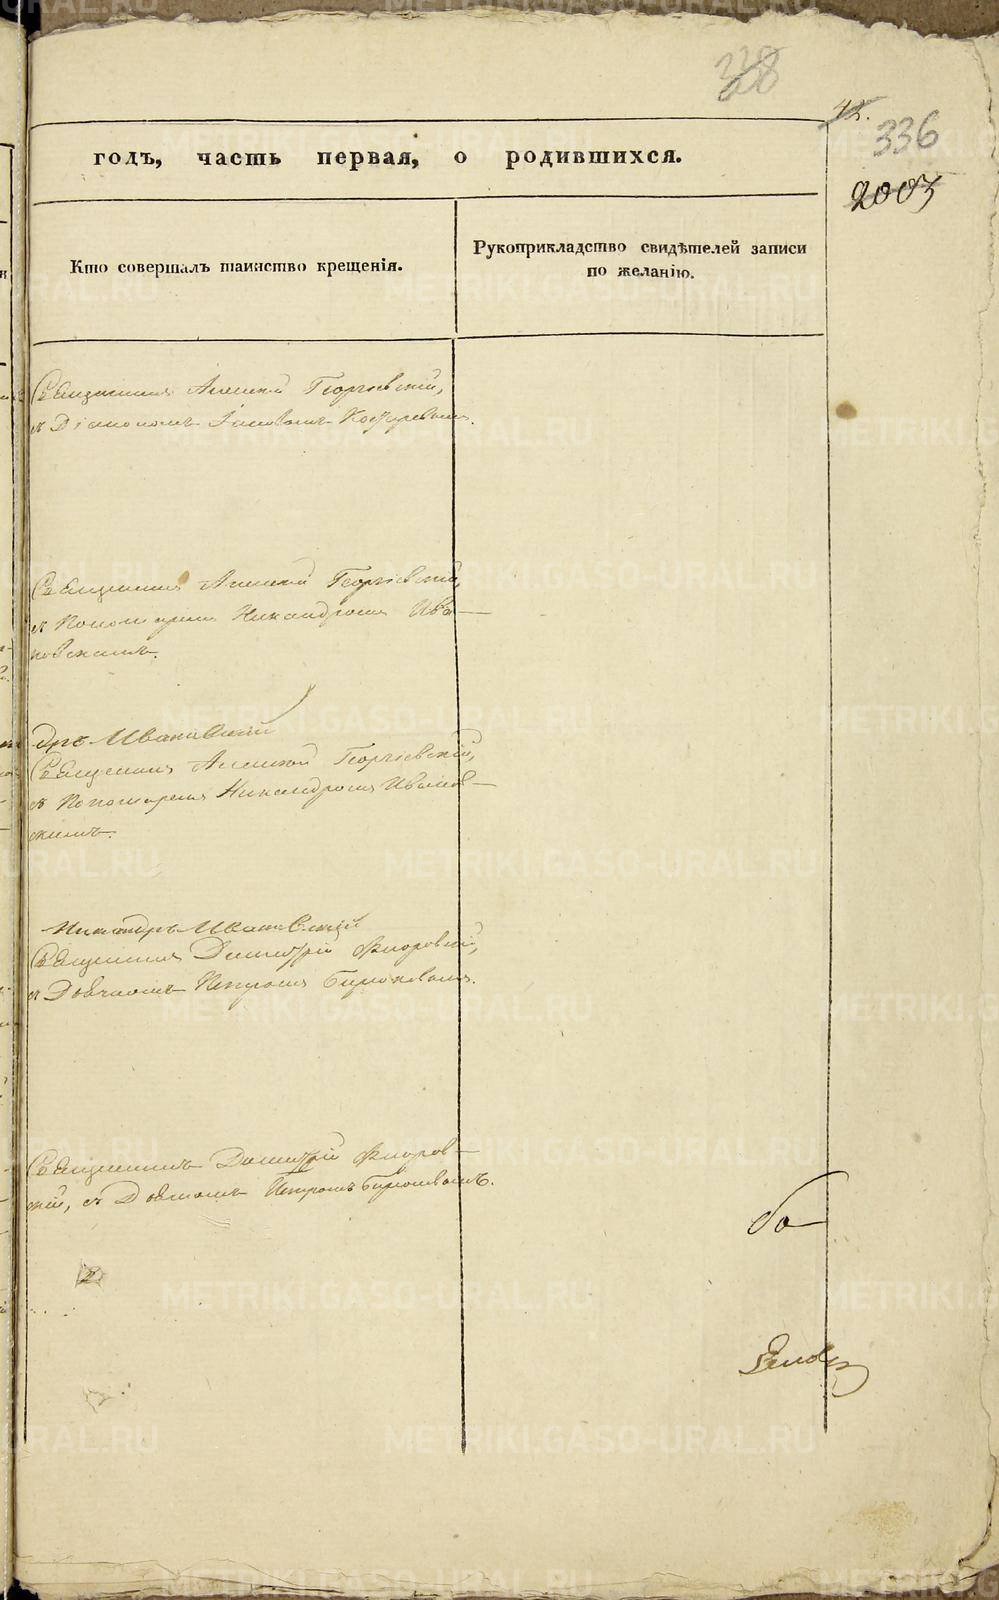 338
42.
336
2003
годъ, часть первая, о родившихся.
Кто совершалъ таинство крещенія.
Рукоприкладство свидѣтелей записи
по желанію.
Священникъ Алексѣй Георгіевскій,
съ Діакономъ
Священникъ Алексѣй Георгіевскій,
съ Пономаремъ Никандромъ Ива-
новскимъ.
дръ Ивановскій
Священникъ Алексѣй Георгіевскій,
съ Пономаремъ Никандромъ Иванов-
скимъ.
Никандръ Ивановскій
Священникъ Димитрій Флоровскій,
съ Дьячкомъ Петромъ Бирюковымъ.
Священникъ Димитрій Флоров-
скій, съ Дьячкомъ Петромъ Бирюковымъ.
METRIKI.GASO-URAL.RU